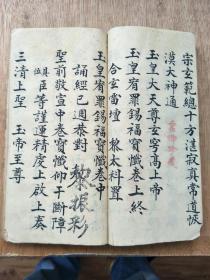 宗玄範總十方湛寂真常道恢
漠大神通
玉皇大天尊玄穹高上帝
玉皇宥罪錫福寶懺卷上終
合玄當壇 黎太科置
玉皇宥罪錫福寶懺卷中
誦經已週恭對 黎振彩
聖前敬宣中卷寶懺仰于斷障
臣等謹運精虔上啟上奏
三清上聖 玉帝至尊